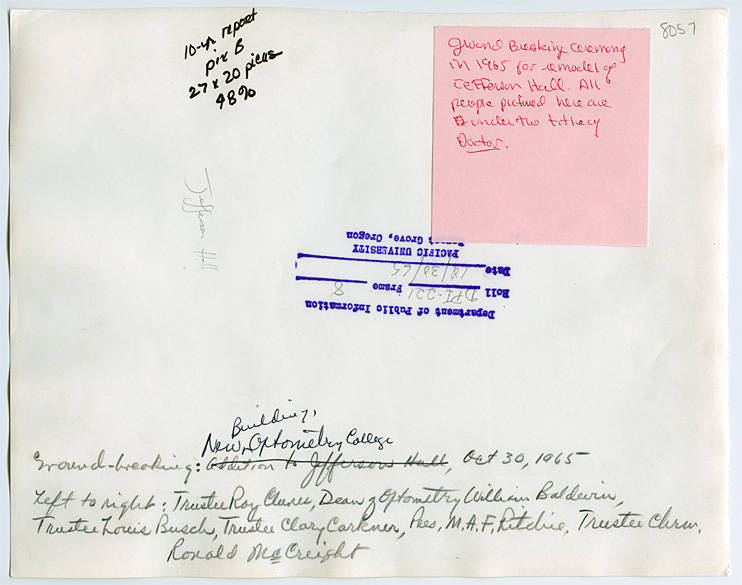 8057
10-yr report
pix B
27 x 20 picas
48%
Ground Breaking Ceremony
in 1965 for remodel of
Jefferson Hall. All
people pictured here are
under the title of
Doctor.
Jefferson Hall
Department of Public Information
Roll DPI-221 Frame 8
Date 10/30/65
PACIFIC UNIVERSITY
Forest Grove, Oregon
Building,
New Optometry College
Ground-breaking: Addition to Jefferson Hall, Oct 30, 1965
Left to right: Trustee Roy Clunes, Dean of Optometry William Baldwin,
Trustee Louis Busch, Trustee Clary Carkner, Pres. M.A.F. Ritchie, Trustee Chrm.
Ronald McCreight